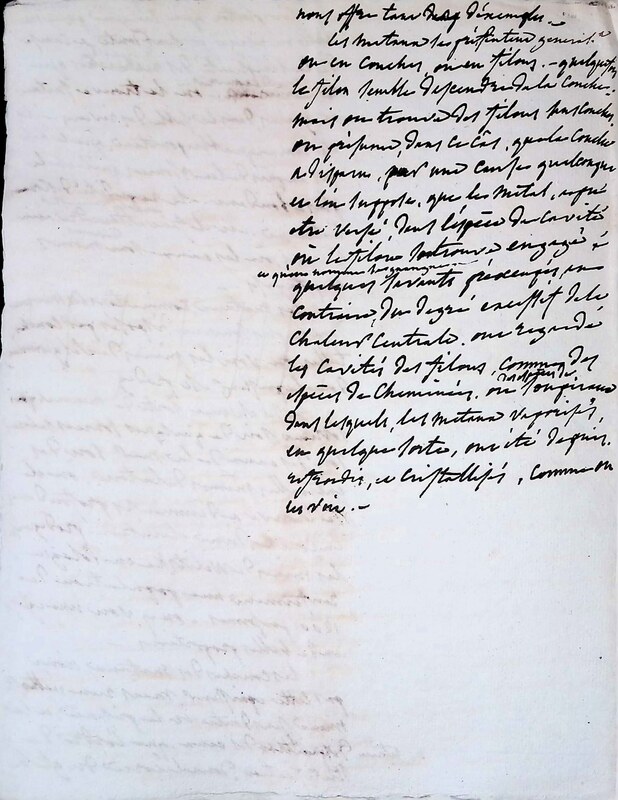 nous offre tant d'exemples. -
les metaux se présentent general.t
ou en couches ou en filons. - quelquefois
le filon semble descendre de la couche
mais on trouve des filons sans couches
on présume, dans ce cas, que la couche
a disparu, par une cause quelconque
et l'on suppose, que les métal, a pu
etre versé, dans l'espèce de cavité
où le filon se trouve engagé &
ce qu'on nomme
quelques savants préocupés, au
contraire, du degré excessif de la
chaleur centrale, ont regardé
les cavités des filons, comme des
espèces de cheminées, ou soupiraux
des espèces de
dans lesquels, les metaux vaporisés,
en quelque sorte, ont été depuis,
refroidis, et cristallisés, comme on
les voit. -